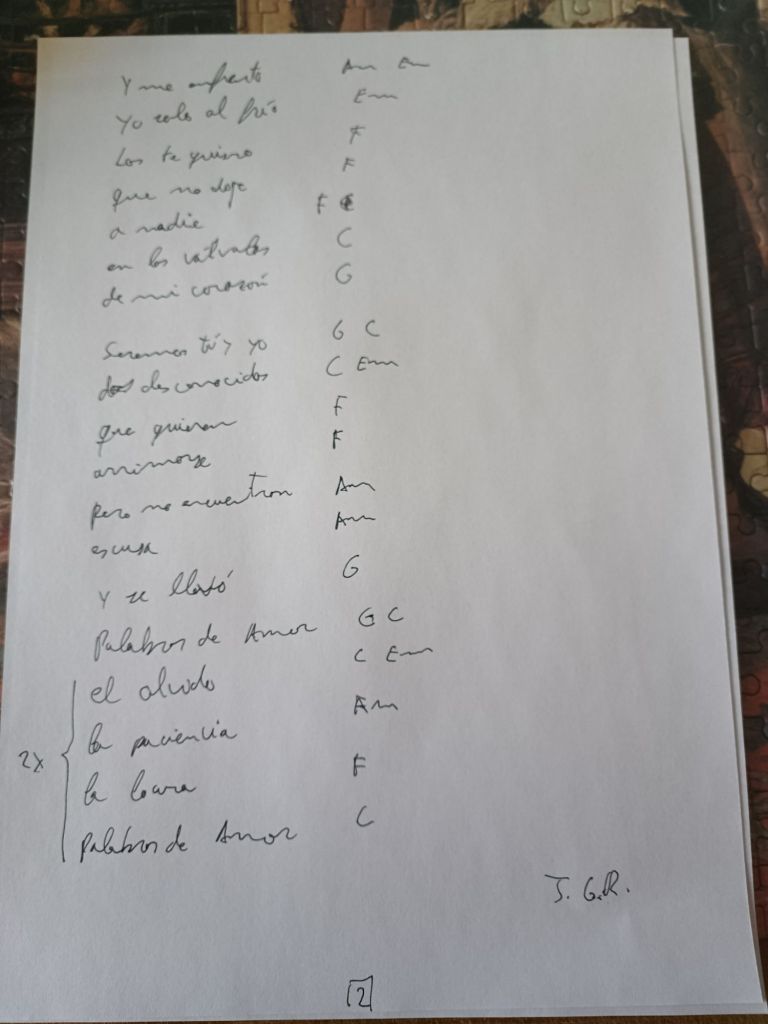 Y me enfrento Am Em
Yo solo al frío Em
Los te quiero F
que no deje F
a nadie F C
en los C
de mi corazón G
Seremos tú y yo G C
dos desconocidos C Em
que quieren F
arrimarse F
pero no encuentran Am
escusa Am
Y se llevó G
Palabras de Amor G C
2x
el olvido C Em
la paciencia Am
la locura F
Palabras de Amor C
J. G.R.
2